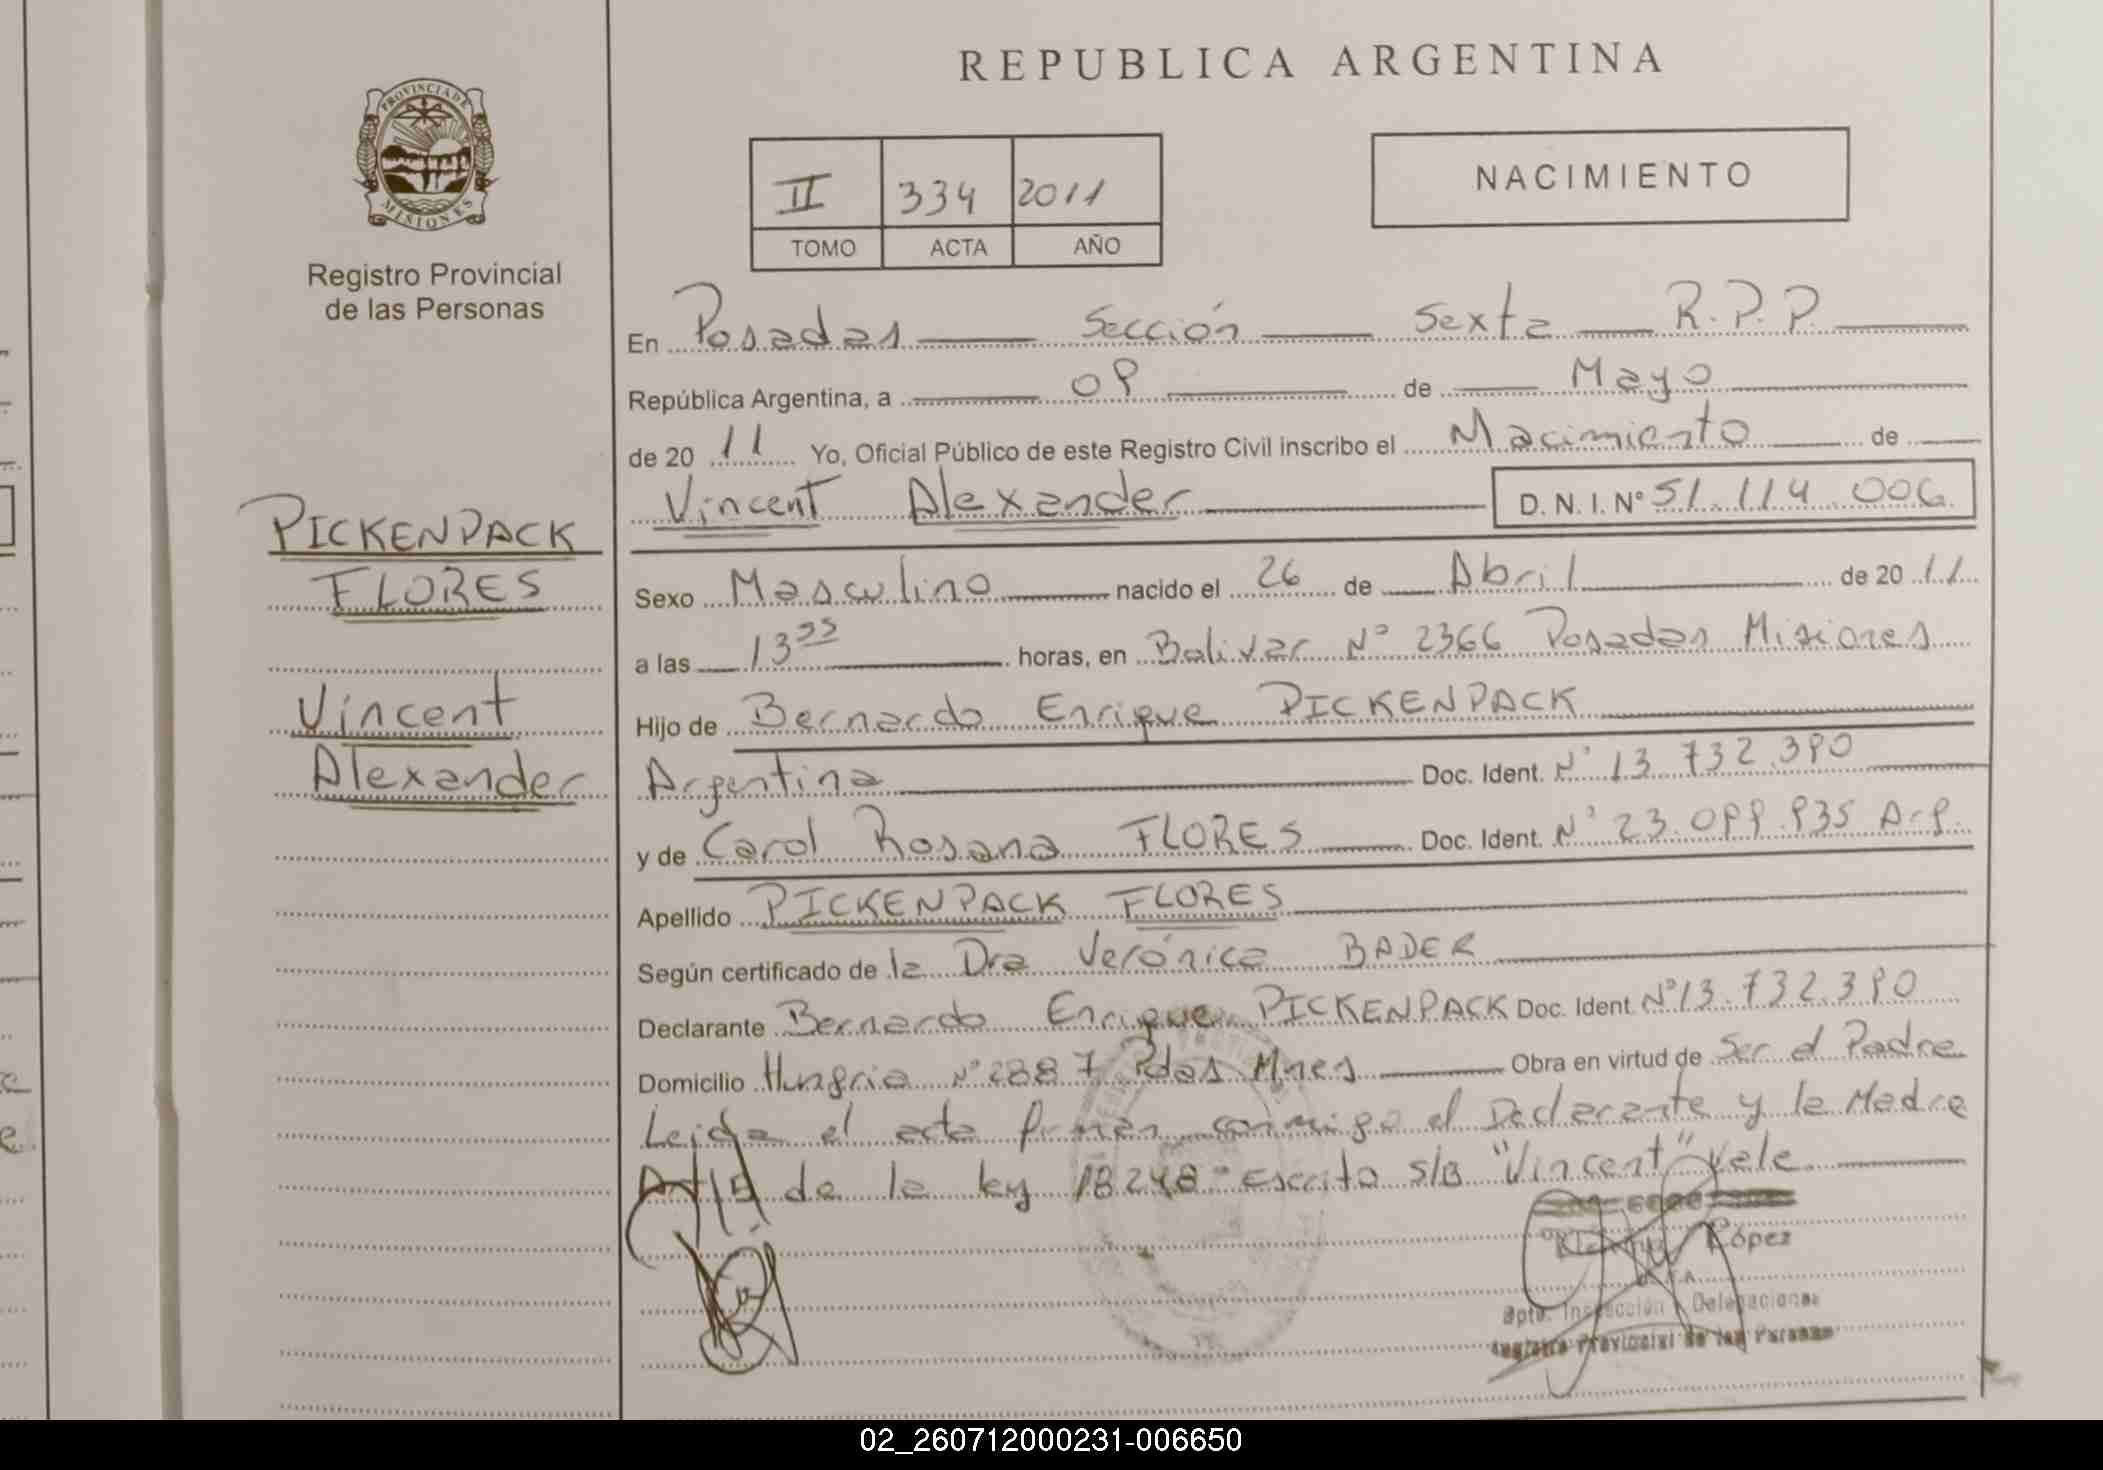 REPUBLICA ARGENTINA
PROVINCIA DE
MISIONES
Registro Provincial
de las Personas
II 334 2011
TOMO ACTA AÑO
NACIMIENTO
En Posadas Sección Sexta R.P.P.
República Argentina, a 09 de Mayo
de 20 11 Yo, Oficial Público de este Registro Civil inscribo el Nacimiento de
Vincent Alexander D. N. I. N° 51.114.006
PICKENPACK
FLORES
Vincent
Alexander
Sexo Masculino nacido el 26 de Abril de 20 11
a las 13 35 horas, en Bolivar N° 2366 Posadas Misiones
Hijo de Bernardo Enrique PICKENPACK
Argentina Doc. Ident. N° 13.732.390
y de Carol Rosana FLORES Doc. Ident. N° 23.099.935 Arg.
Apellido PICKENPACK FLORES
Según certificado de la Dra Verónica BADER
Declarante Bernardo Enrique PICKENPACK Doc. Ident. N° 13.732.390
Domicilio Hungria N° 2887 Pdas Mnes Obra en virtud de Ser el Padre
Leida el acta firman conmigo el Declarante y la Madre
de la ley 18248 - Escrito S/B "Vincent" Vale
López
Dpto. Inspección y Delegaciones
Registro Provincial de las Personas
02_260712000231-006650